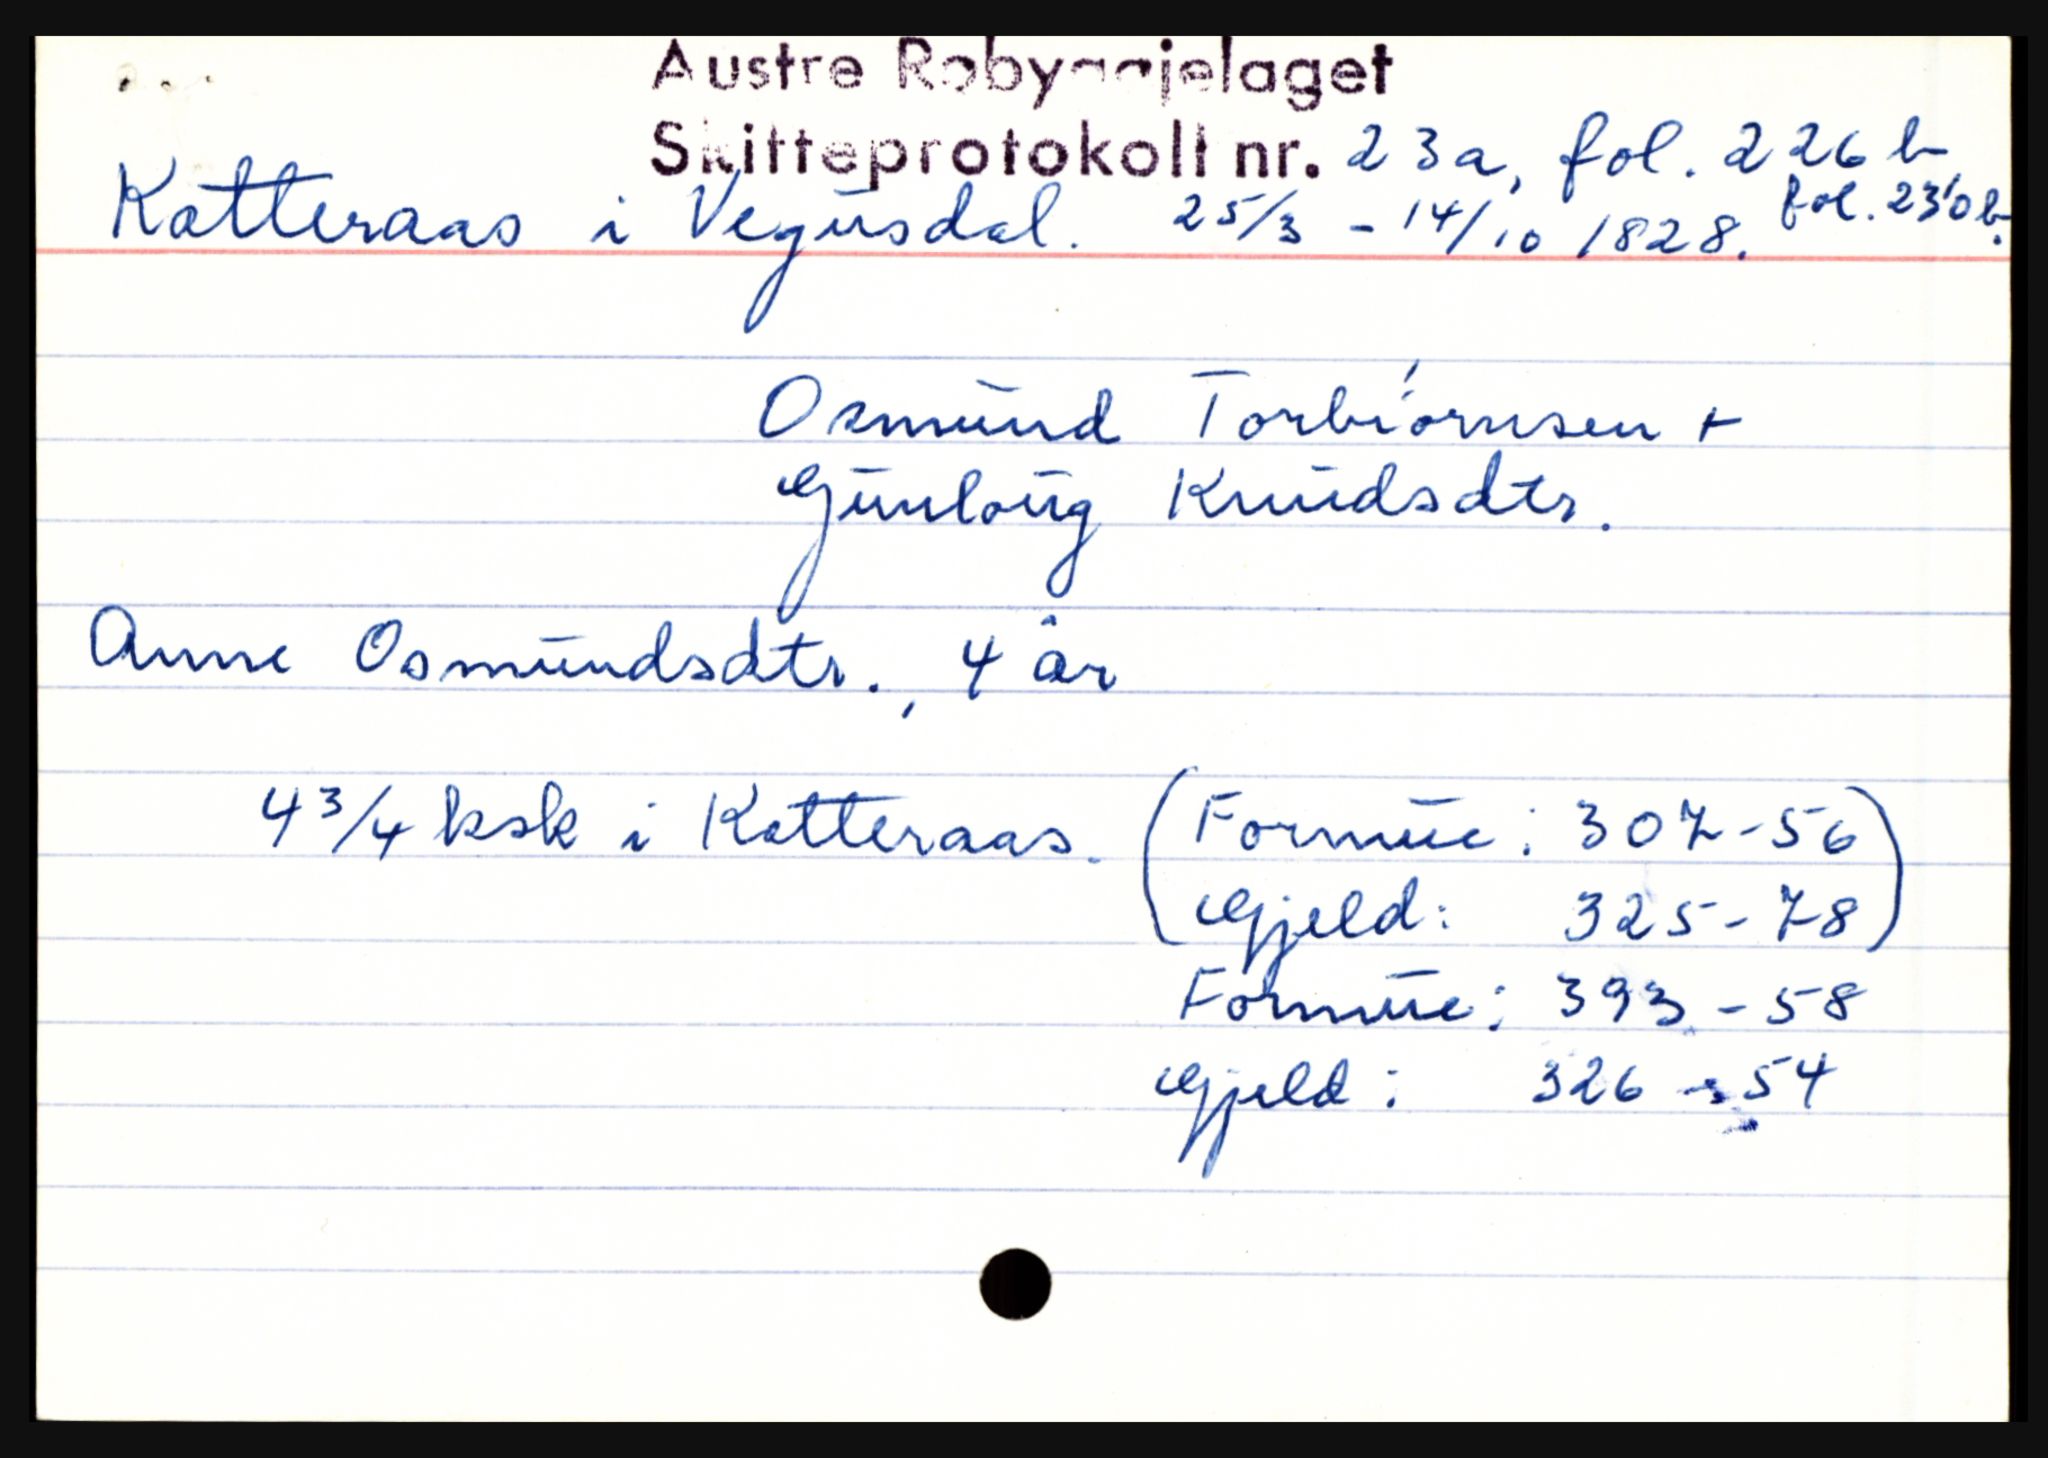 Austre Robyggjelaget
Skifteprotokoll nr. 23a, fol. 226 b
Katteraas i Vegusdal. 25/3 - 14/10 1828. fol. 230 b.
Osmund Torbiørnsen +
Gunloug Knudsdtr.
Anne Osmundsdtr., 4 år
4 3/4 ksk i Katteraas. (Formue: 307-56
Gjeld: 325-78)
Formue: 393-58
Gjeld: 326-54